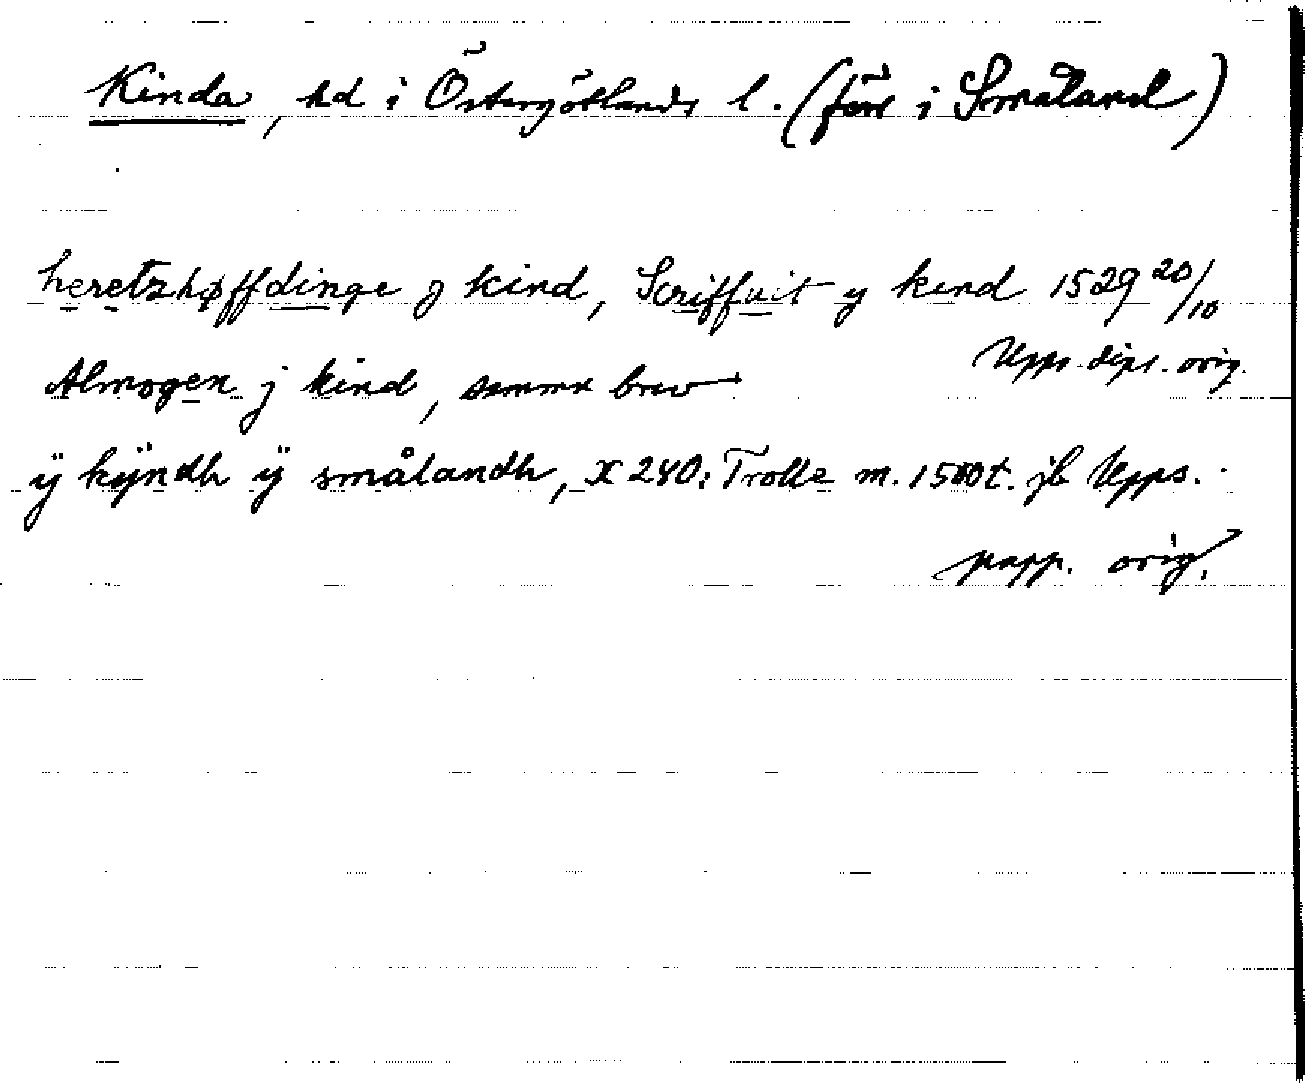 Kinda, hd i Östergötlands l. (förr i Småland)
heretzhøffdinge j kind, Scriffuit y kind 1529 20/10
Upps. dipl. orig.
Almogen j kind, samma brev
ÿ kÿndh ÿ smålandh, X 240: Trolle m. 1500t. jb Upps.
papp. orig.